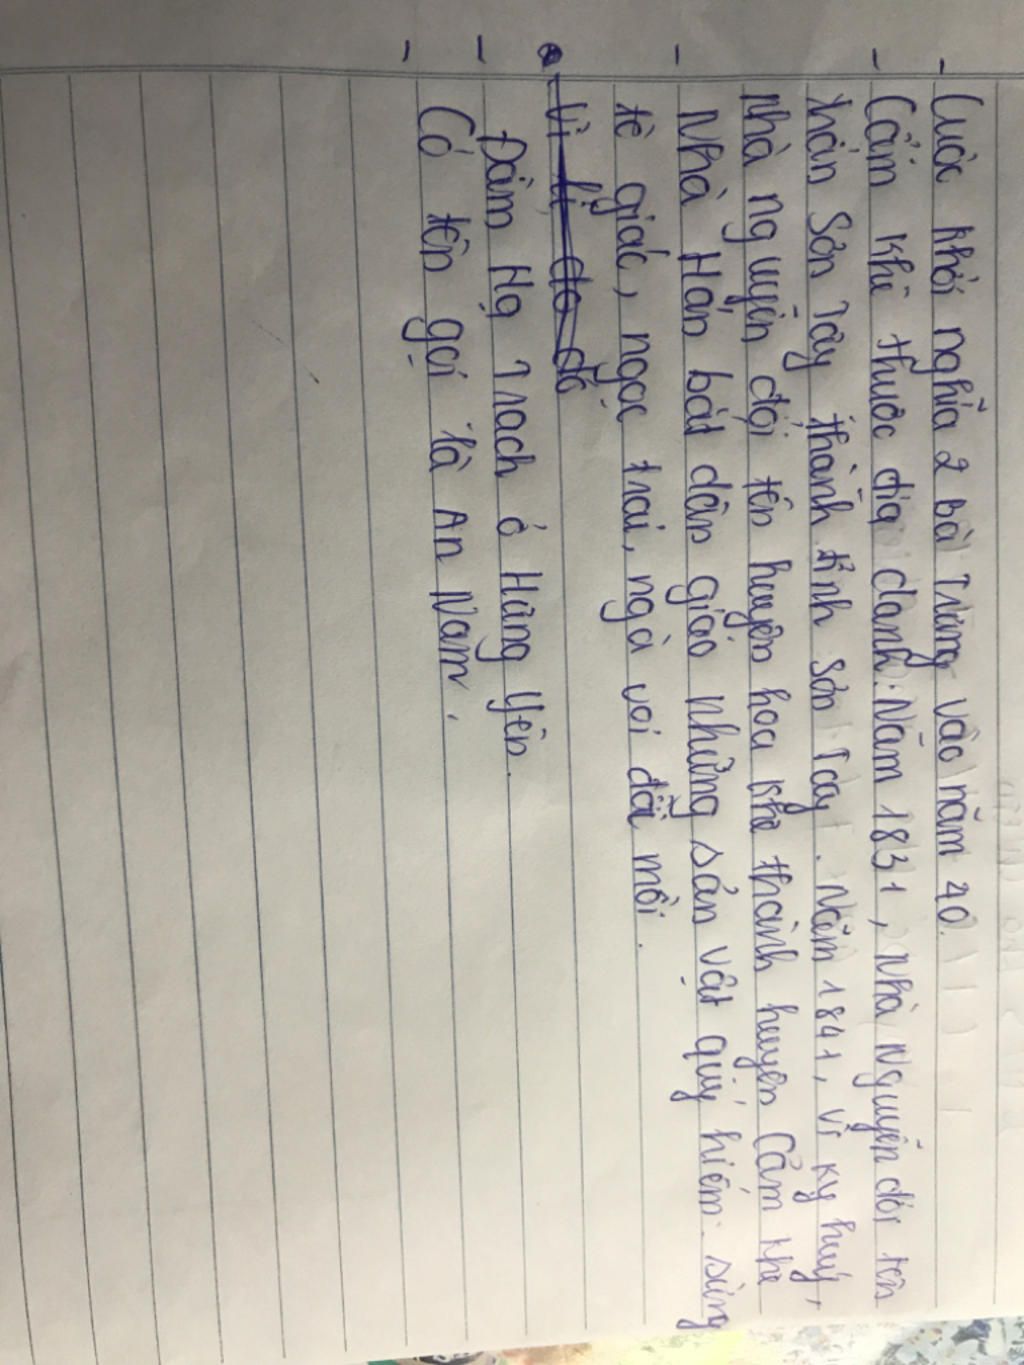 - Cuộc khởi nghĩa 2 bà Trưng vào năm 40.
- Cẩm khê thuộc địa danh. Năm 1831, Nhà Nguyễn đổi tên
trấn Sơn Tây thành tỉnh Sơn Tây. Năm 1841, vì kỵ huý,
nhà nguyễn đổi tên huyện hoa khê thành huyện Cẩm khê
- Nhà Hán bắt dân giao những sản vật quý hiếm: sừng
tê giác, ngọc trai, ngà voi đồi mồi.
Vì lí do đó
- Đầm Hạ Trạch ở Hưng Yên.
- Có tên gọi là An Nam.